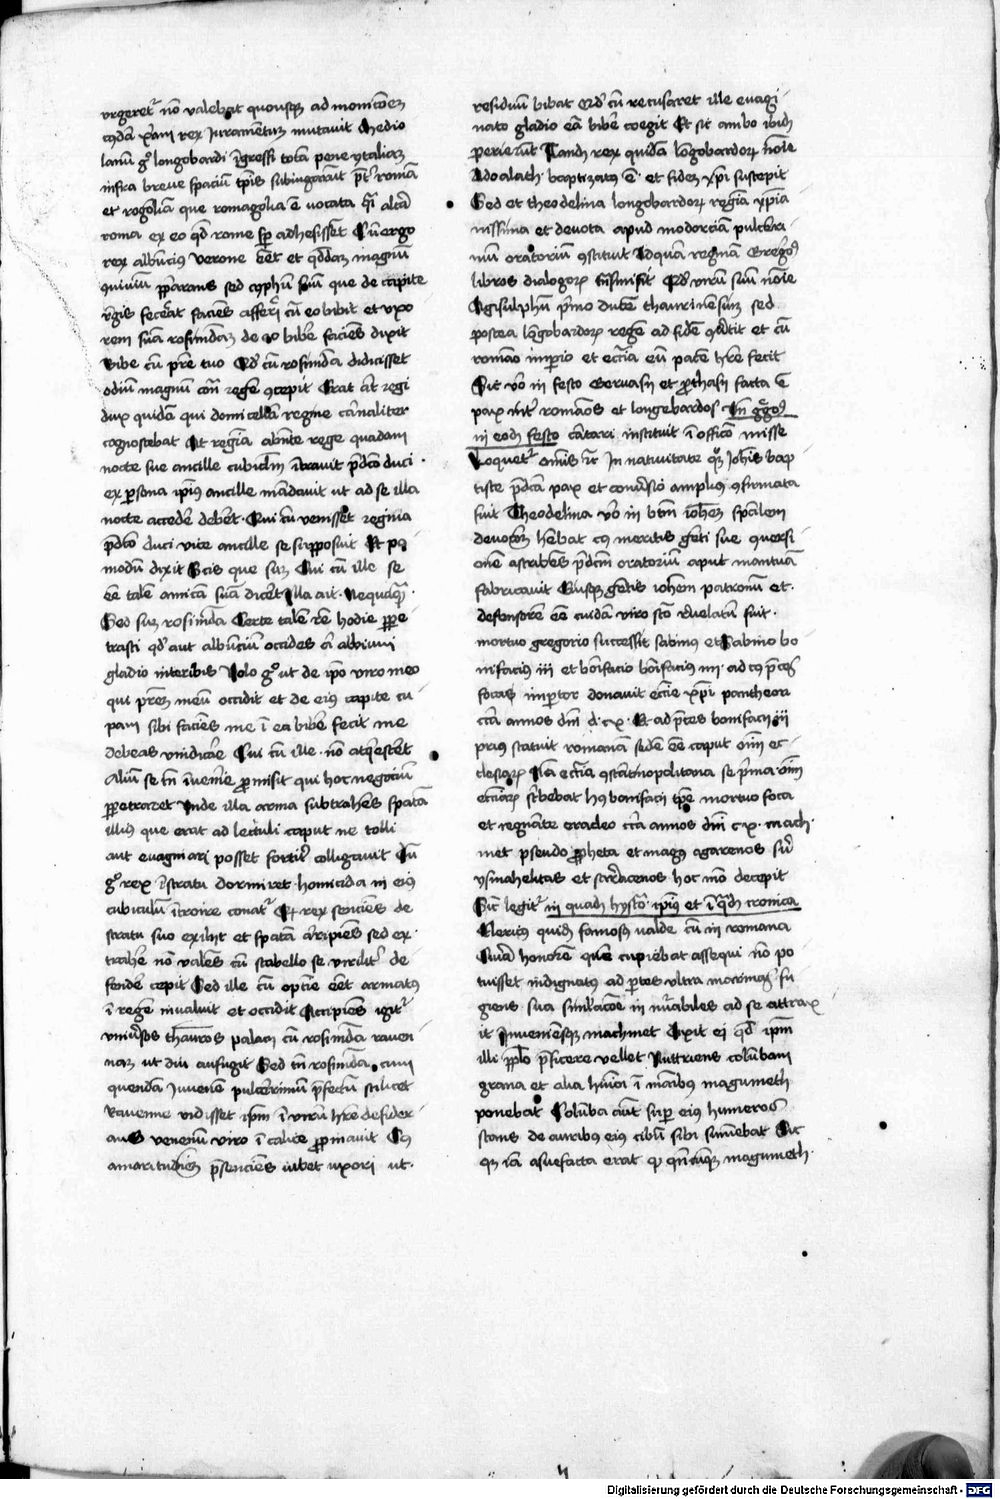 urgeret᷑ nō valebat quousqꝫ ad monicōeꝫ
cuiꝰdā xp̄iani rex Juramentuꝫ mutauit Medio
lanū gͦ longobardi īgressi totā pene ytaliaꝫ
infra breue spaciū tp̄is subiugarūt p̄t᷑ romā
et rogoliam que romagolia ē vocata qͣi altā
roma ex eo qd̓ rome sp̄ adhesisset Cū ergo
rex albuncius verone eēt et qd̓daꝫ magnū
ꝯuiuiū p̄pararās sed cyphum suū que de capite
regis fecerat faciēs afferri cū eo bibit et vxo
rem suā rosimūdaꝫ de eo bibere faciēs dixit
Bibe cū pr̄e tuo Qd̓ cū rosimūda didicisset
odiū magnū contra regē ꝯcepit Erat āt regi
dux quidā qui domicellā regine carnaliter
cognoscebat At regīa absente rege quadam
nocte sue ancille cubiculm̄ ītrauit p̄dc̄o duci
ex p̲sona ip̄iꝰ ancille mādauit ut ad se illa
nocte accedere deberet Qui cū venisset regina
p̄dc̄o duci vice ancille se supposuit Et po
modū dixit Scis que suꝫ Cui cū ille se
eē talē amicā suā diceret Illa ait Nequaqͣꝫ
Sed suꝫ rosimūda Certe talē rē hodie perpe
trasti qd̓ aut albuncium occides aut albuini
gladio interibis Volo gͦ ut de ip̄o viro meo
qui pr̄eꝫ meū occidit et de eiꝰ capite cu
pam sibi faciēs me ī ea bibere fecit me
debeas vindicare Cui cū ille nō acqͥesceret
Aliū se tn̄ īuenire promisit qui hoc negociū
perpetraret Vnde illa arma subtrahēs spatā
illiꝰ que erat ad lectuli caput ne tolli
aut euaginari posset fortit᷑ colligauit Cū
gͦ rex ī stratu dormiret homicida in eiꝰ
cubiculū ītroire conatr᷑ Et rex senciēs de
stratu suo exiliit et spatā arripiēs sed ex
trahere nō valēs cū scabello se virilit᷑ de
fendere cepit Sed ille cū optīe eēt armatꝰ
ī regē inualuit et occidit Accipiēs igit᷑
vniuersos thesauros palacij cū rosimūda raueñ
naꝫ ut diu aufugit Sed cū rosimūda cum
quendā Juuenē pulcerimū p̄fectū scilicet
Rauenne vidisset ip̄m ī virū hr̄e desider
ans venenū viro ī calice propinauit Cuꝰ
amaritudineꝫ p̄senciēs iubet vxori ut
residuū bibat Qd̓ cū recusaret ille euagi
nato gladio eā bibere coegit Et sic ambo ibidꝫ
perierūt Tandeꝫ rex quidā lōgobardoꝝ noīe
Adoalath baptizatꝰ ē et fideꝫ xp̄i suscepit
Sed et theodelina longobardoꝝ regīa xp̄ia
nissima et deuota apud modociam pulcerri
mū oratoriū ꝯstituit Ad quā reginā Gregoꝰ
libros dialogoꝝ trāsmisit Qd̓ virū suū noīe
Agisulphū primo ducē thaurinēsiuꝫ sed
postea lōgobardoꝝ regē ad fidē ꝯuertit et cū
romano imperio et ecc̄ia eū pacē hr̄e fecit
Sic vo in festo Geruasij et prothasij facta ē
pax int᷑ romāos et longobardos Vn̄ gͣgoꝰ
in eodꝫ festo cantari instituit ī officio misse
Loquetur dn̄s etc In natiuitate quoqꝫ Joh̄is bap
tiste p̄dc̄a pax et conuersio ampliꝰ ꝯfirmata
fuit Theodelina vo in btm̄ ioh̄em spālem
deuocōeꝫ habebat cuꝰ meritis genti sue ꝯuersi
onē ascribēs p̄dc̄m oratoriū aput mantuā
fabricauit Cuiusqꝫ gētis ioh̄em patronū et
defensorē eē cuidā viro scō reuelatū fuit
mortuo gregorio successit sabinus et Sabino bo
nifacius iii et bonifacio bonifacius iiii ad cuꝰ p̄ces
focas imperator donauit ecc̄ie xp̄i pantheon
circa annos dn̄i d c x Et ad p̄ces bonifacij iii
priꝰ statuit romanā sedē eē caput oīm ec
clesiaꝝ Nā ecc̄ia ꝯstātinopolitana se primā oīm
ecc̄iaꝝ scribebat Huiꝰ bonifacij tp̄e mortuo foca
et regnāte eracleo circa annos dn̄i c x mach
met pseudo propheta et magꝰ agarenos siue
ysmahelitas et sarracenos hoc modo decepit
Sicut legit᷑ in quadꝫ hystoria ipiꝰ et ī quadꝫ cronica
Clericꝰ quidꝫ famosꝰ valde cū in romana
Curia honorē quē cupiebat assequi nō po
tuisset indignatꝰ ad partes vltra marinas fu
giens sua simulacōe in nūerabiles ad se attrax
it Inueniēsqꝫ machmet Dixit ei qd̓ ipm̄
illi pplo p̄ficere vellet Nuttriens columbam
grana et alia huiusmodi ī auribus magumeth
ponebat Columba aut super eiꝰ humeros
stans de auribꝰ eiꝰ cibū sibi sumebat Sic
qꝫ iā assuefacta erat qd̓ qn̄cūqꝫ magumeth
Digitalisierung gefördert durch die Deutsche Forschungsgemeinschaft - DFG